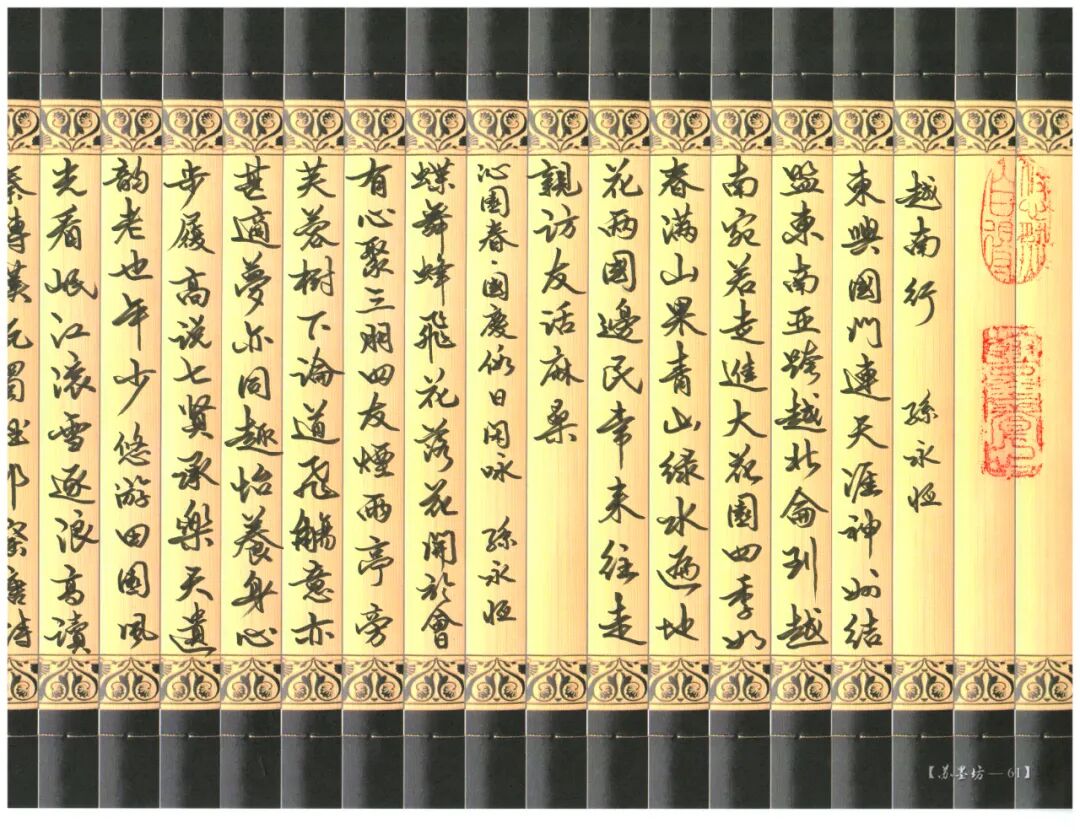 越南行 孫永恒
東興國門連天涯神州結
盟東南亚跨越北侖到越
南宛若走進大花園四季如
春满山果青山绿水遍地
花两國邊民常来往走
親访友话麻桑
沁園春·國慶假日闲咏 孫永恒
蝶舞蜂飛花落花開於會
有心聚三朋四友煙雨亭旁
芙蓉树下論道飛觴意亦
甚適夢亦同趣怡養身心
步履高说七贤承樂天遺
韵老也年少悠游田園風
光看岷江滚雪逐浪高讀
秦磚漢瓦蜀
【苏墨坊—61】